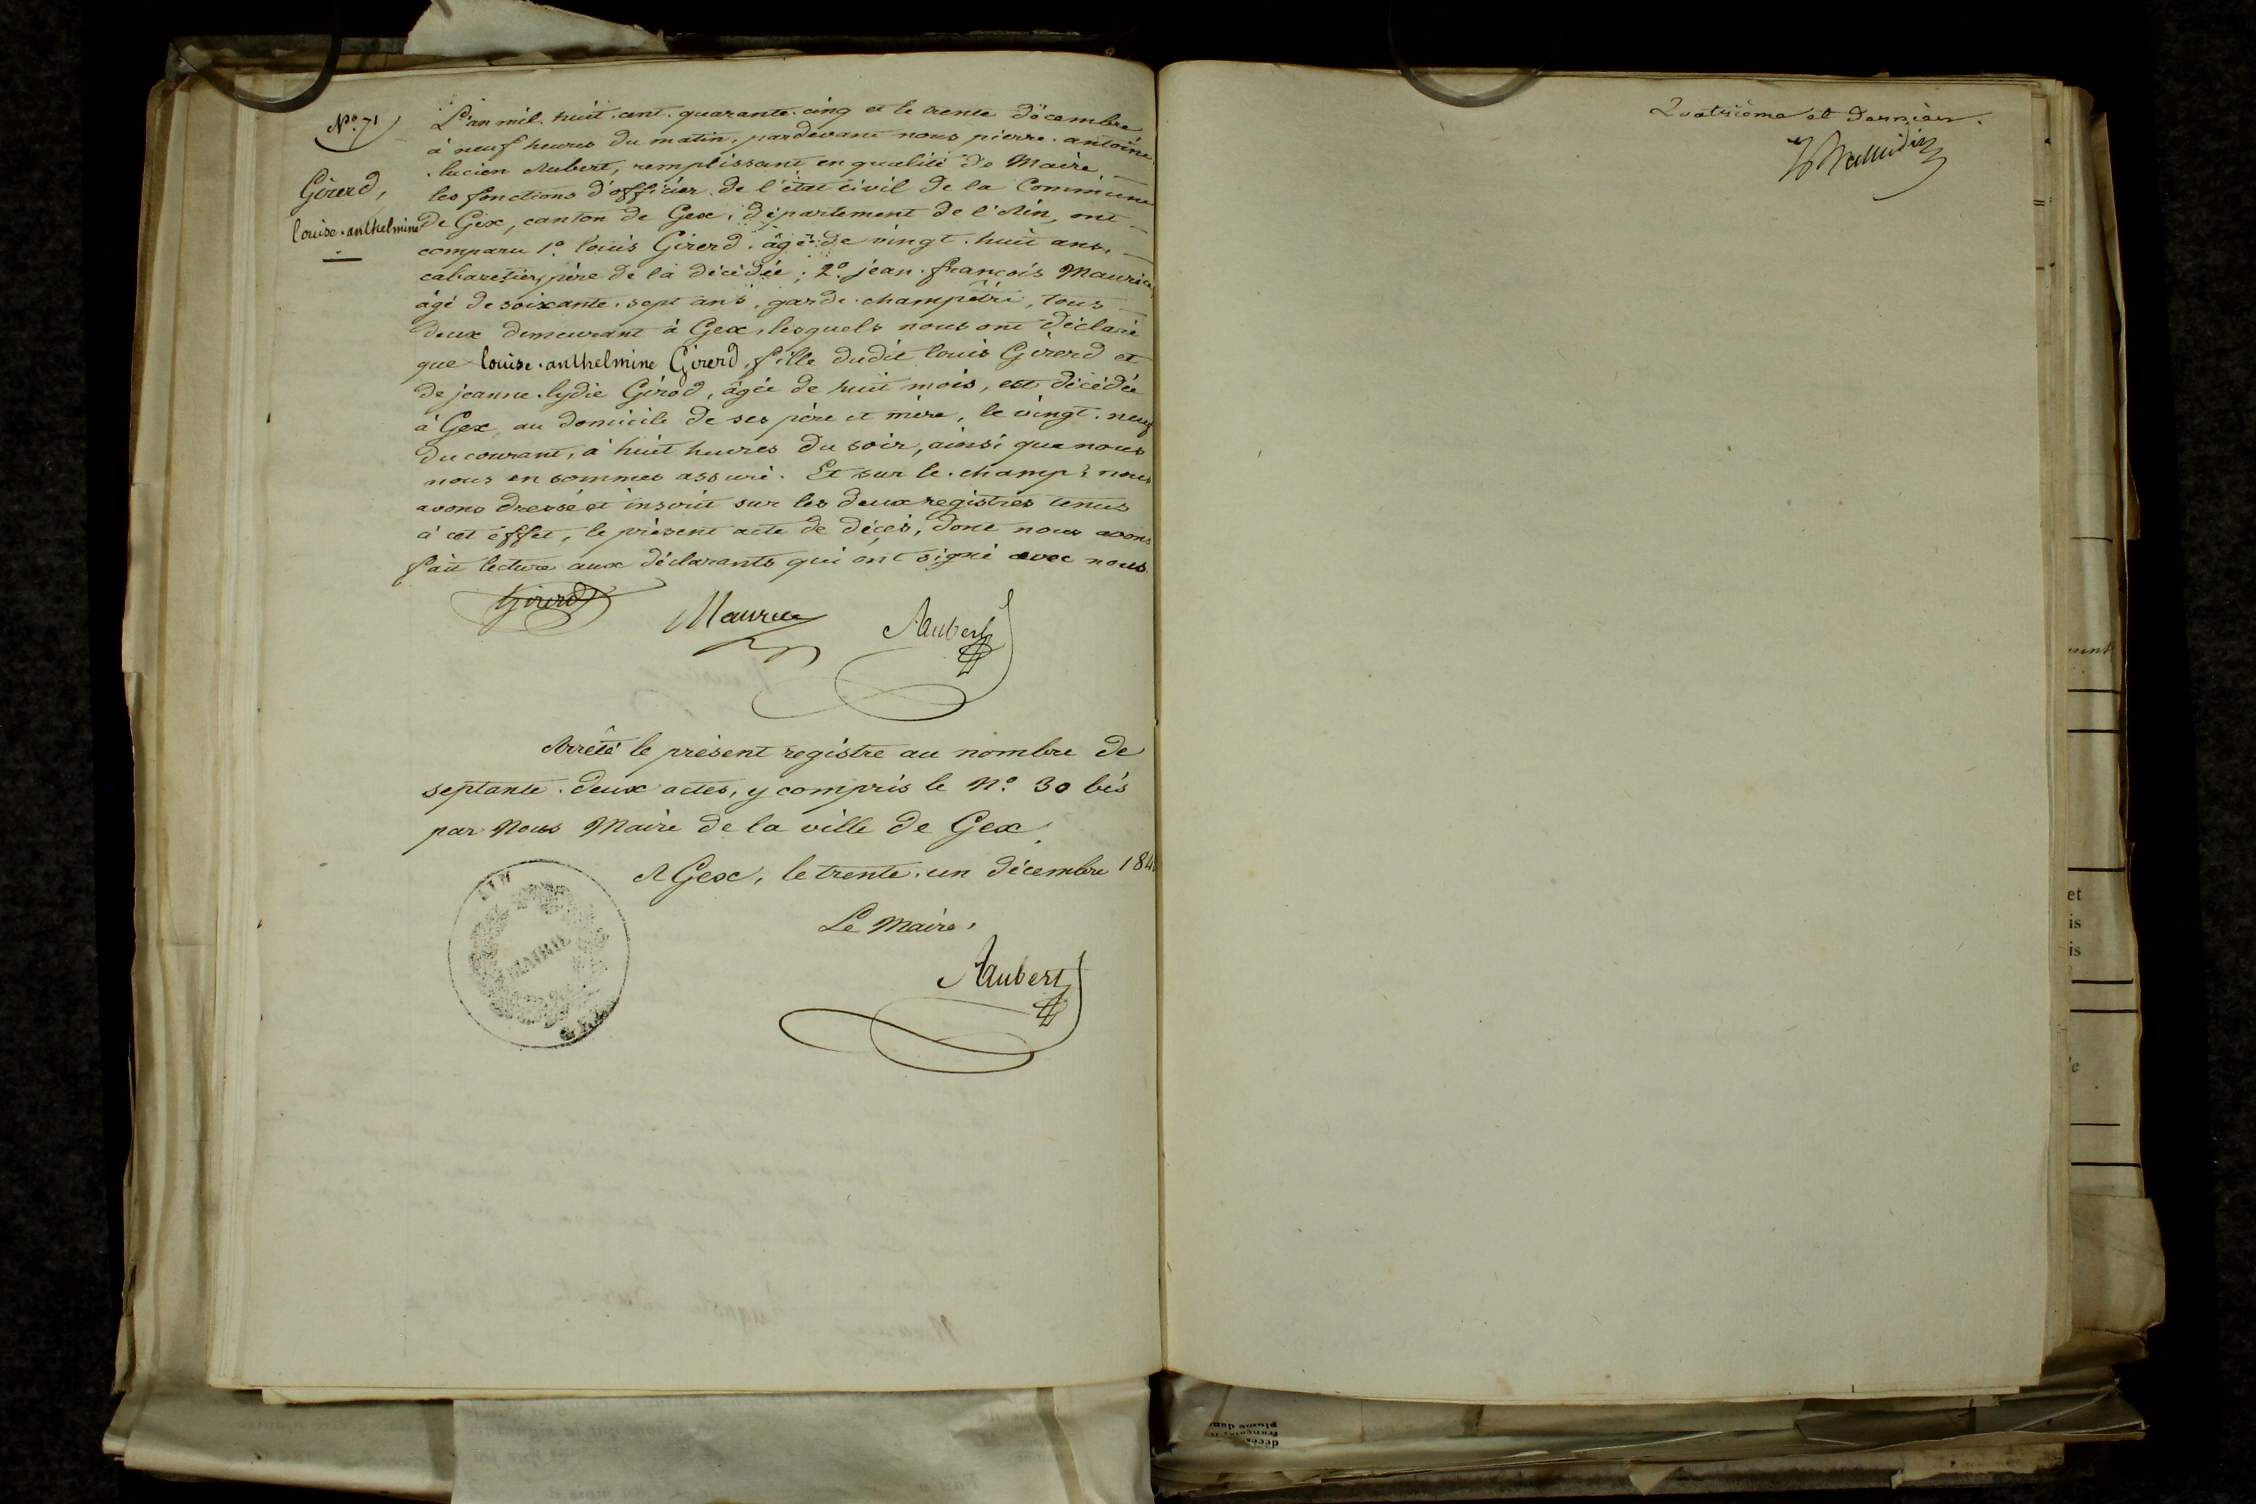 N.º 71
Girerd,
louise. anthelmine
L'an mil. huit. cent. quarante. cinq et le trente décembre
à neuf heures du matin, pardevant nous pierre. antoine.
lucien Aubert, remplissant en qualité de Maire
les fonctions d'officier de l'état civil de la Commune
de Gex, canton de Gex, département de l'Ain, ont
comparu 1.º louis Girerd, âgé de vingt. huit ans,
cabaretier, père de la décédée; 2.º jean. françois Maurice,
âgé de soixante. sept ans, garde. champêtre, tous
deux demeurant à Gex, lesquels nous ont déclaré
que louise. anthelmine Girerd, fille dudit louis Girerd et
de jeanne. lydie Girod, âgée de huit mois, est décédée
à Gex, au domicile de ses père et mère, le vingt. neuf
du courant, à huit heures du soir, ainsi que nous
nous en sommes assuré. Et sur le. champ, nous
avons dressé et inscrit sur les deux registres tenus
à cet éffet, le présent acte de décès, dont nous avons
fait lecture aux déclarants qui ont signé avec nous.
Girerd
Maurice
Aubert
Arrêté le présent registre au nombre de
septante. deux actes, y compris le N.º 30 bis
par Nous Maire de la ville de Gex.
A Gex, le trente. un décembre 184
Le Maire,
AIN
MAIRIE
GEX
Aubert
Quatrième et dernier.
et
is
is